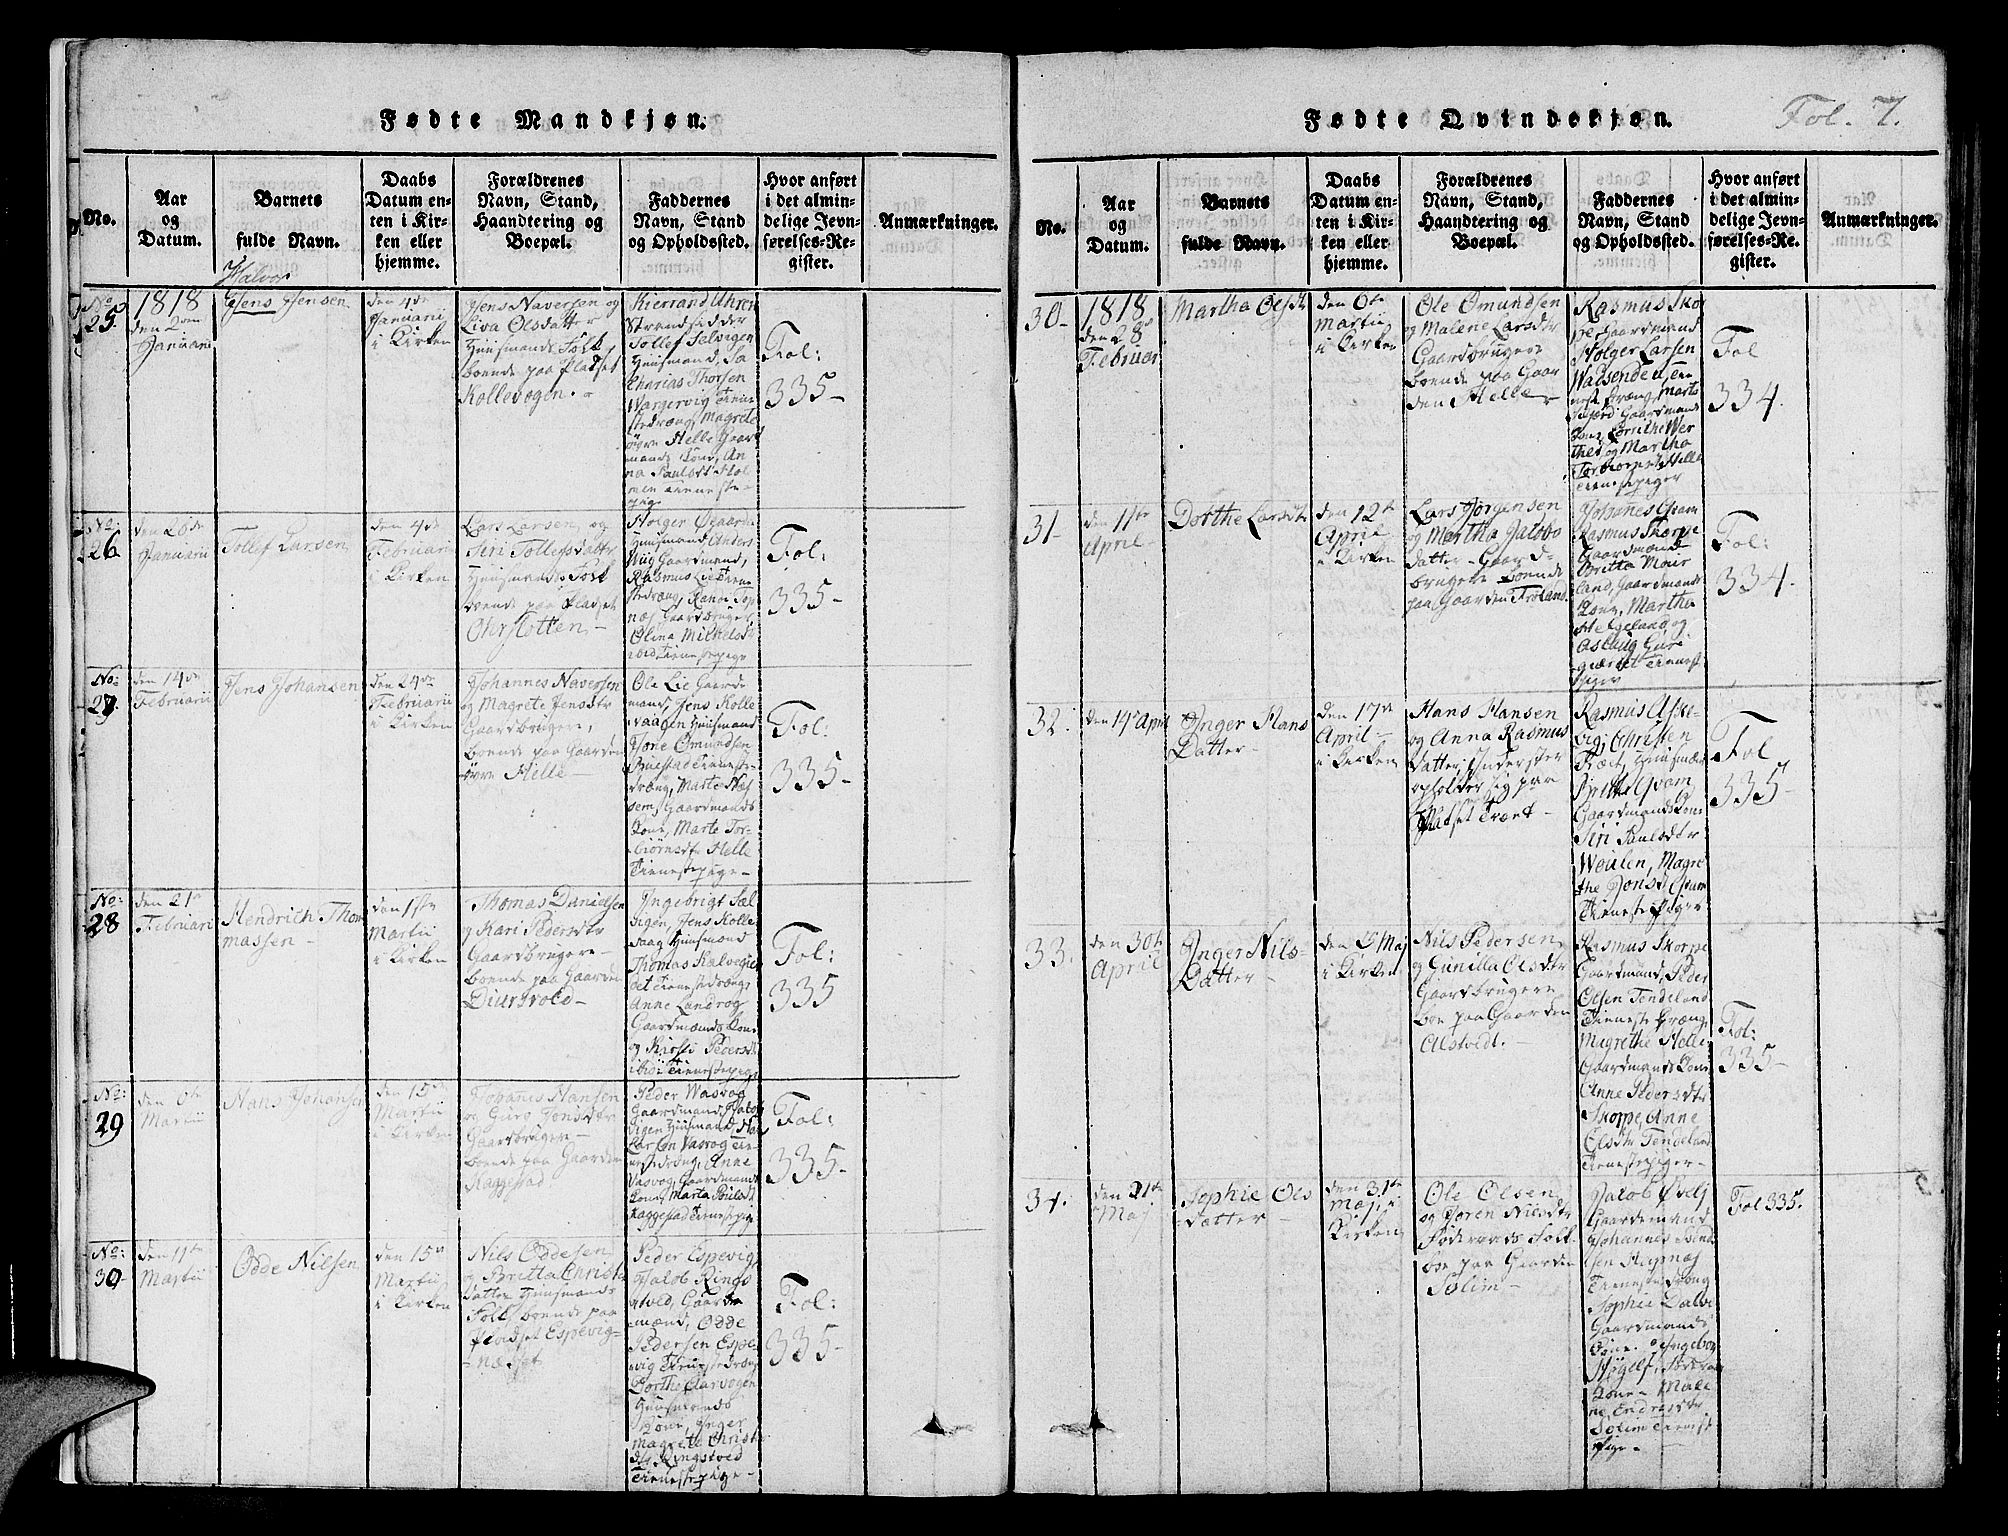 Fødte Mandkjøn.
No.
Aar
og
Datum.
Barnets
fulde Navn.
Daabs
Datum en-
ten i Kir-
ken eller
hjemme.
Forældrenes
Navn, Stand,
Haandtering og
Boepæl.
Faddernes
Navn, Stand
og Opholdssted.
Hvor anført
i det almin-
delige Jevn-
førelses-Re-
gister.
Anmærkninger.
No
25.
1818
den 2den
Januarii
Halvor
Jens Jensen
den 4de
Januarii
i Kirken
Jens Naversen og
Siva Olsdatter
Huusmands Folk
boende paa Pladset
Kollevogen.
Strandsidder
Tollef Selvigen
Huusmand, Sa
charias Thorsen
Wargervig Tiene
stedræng, Magrete
øvre Helle Gaard
mands Kone, An
na Paulsdt Hol
men Tieneste-
pige
Fol:
335-
No:
26
den 26de
Januarii
Tollef Larsen
den 4de
Februarii
i Kirken
Lars Larsen og
Siri Tollefsdattr
Huusmands Folk
boende paa Pladset
Ohrslotten-
Holger Øgaard
Huusmand, Anders
Gaardmand,
Rasmus Lie Tiene
stedræng,
Gaardbruger,
Olina Mikkelsdt
ibid Tienestepige
Fol:
335-
No:
27.
den 14de
Februarii
Jens Johansen
den 24de
Februarii
i Kirken
Johannes Naversen
og Magrete Jensdtr
Gaardbrugere,
boende paa Gaarden
øvre Helle-
Ole Lie Gaard
mand, Jens Kolle
vaagen Huusmand
Tore Omundsen
Tieneste-
dræng, Marte Næs
sem, Gaardmands
Kone, Marte Tor-
biørnsdtr Helle
Tienestepige-
Fol:
335-
No:
28
den 21de
Februari
Hendrich Tho-
massen-
den 1ste
Martii
i Kirken
Thomas Danielsen
og Kari Pedersdtr
Gaardbrugere-
boende paa Gaarden
Diursvold-
Ingebrigt Sæl
vigen, Jens Kolle
vaag Huusmænd
Thomas
det Tienestedræng
Anne Landrog
Gaardmands Kone
og Kirsti Pedersdt
Tienestepige
Fol:
335
No:
29
den 6te
Martii
Hans Johansen
den 15de
Martii
i Kirken
Johanes Hansen
og Guro Jonsdtr
Gaardbrugere-
boende paa Gaarden
Raggestad
Peder Wasvog
Gaardmand, Jacob
vigen Huusmand, Hans
Larsen Vasvog Tie-
nestedræng, Anne
Vasvog, Gaardmands
Kone, Marta Poulsdt
Raggestad Tienestepige
Fol:
335-
No:
30
den 11te
Martii
Odde Nilsen
den 15de
Martii,
i Kirken
Nils Oddesen
og Britta Christo
datter Huusmands
Folk boende paa
Pladset Espevig-
næsset
Peder Espevig,
Jacob Rings
tved, Gaard
mænd, Odde
Pedersen Espe-
vig Tienestedræng
Dorthe Aarvogen
Huusmands
Kone, Inger
Magrete Christo
dtr Ringstved
Tienestepige-
Fol:
335-
Fødte Qvindekjøn.
Fol. 7.
No.
Aar
og
Datum.
Barnets
fulde Navn.
Daabs
Datum en-
ten i Kir-
ken eller
hjemme.
Forældrenes
Navn, Stand,
Haandtering og
Boepæl.
Faddernes
Navn, Stand
og Opholdssted.
Hvor anført
i det almin-
delige Jevn-
førelses-Re-
gister.
Anmærkninger.
30-
1818
den 28de
Februar
Martha Olsdt
den 6te
Martii
i Kirken
Ole Omundsen
og Malene Larsdtr
Gaardbrugere
boende paa Gaar
den Helle-
Rasmus Skor
pe Gaardmand
Holger Larsen
Wadsenden, en-
Gaardmands
Kone,
og Martha
Torbiørnsdt Helle
Tienestepiger
Fol
334.
31-
den 11te
April-
Dorthe Larsdtr
den 12te
April
i Kirken
Lars Jørgensen
og Martha Jacobs
datter Gaard-
brugere boende
paa Gaarden Froland.
Johanes Qvam
Rasmus Skorpe
Gaardmænd
Britta Mour
land, Gaardmands
Kone, Martha
Helgeland og
Aslaug Guri
giærdet Tienest
piger
Fol:
334.
32.
den 14de April
Inger Hans
Datter-
den 17de
April-
i Kirken
Hans Hansen
og Anna Rasmus
datter, Inderster
opholder sig paa
Pladset Træet-
Rasmus Aske-
vig, Christen
Træet, Huusmænd
Brithe Qvam
Gaardmands Kone
Siri Paulsdtr
Weulen, Magre
the Jonsd Qvam
Tienestepiger
Fol
335-
33.
den 30te
April
Inger Nils-
Datter-
den 3 Maj
i Kirken
Nils Pedersen,
og Gunilla Olsdtr
Gaardbrugere
boe paa Gaarden
Alstvedt.-
Rasmus Skorpe
Gaardmand, Peder
Olsen Tendeland
Tieneste Dræng,
Magrethe Helle
Gaardmands Kone
Anne Pedersdtr
Skorpe, Anne
Olsdtr Tendeland
Tienestepiger-
Fol:
335-
34.
den 21te
Maj
Sophie Ols
datter-
den 31te
Maj, i
Kirken
Ole Olsen
og Joren Nilsdtr
Føderaads Folk
boe paa Gaarden
Solim-
Jacob Øvelj
Gaardemand
Johannes
sen Hapnæs
Tieneste Dræng
Sophie Dalve
Gaardmands
Kone. Ingebor
Føderaa
Kone- Male
ne Endresdtr
Solim Tieneste
pige-
Fol 335.